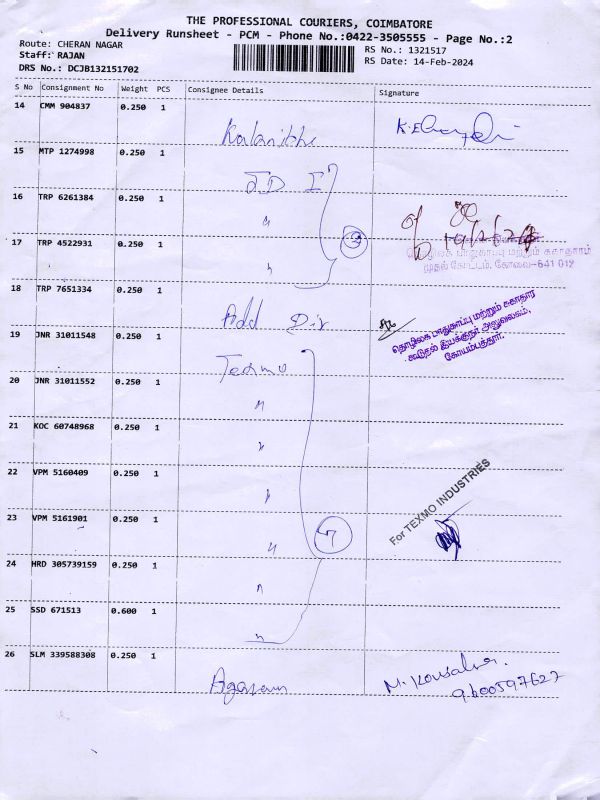 THE PROFESSIONAL COURIERS, COIMBATORE
Delivery Runsheet - PCM - Phone No.:0422-3505555 - Page No.:2
Route: CHERAN NAGAR
RS No.: 1321517
Staff: RAJAN
RS Date: 14-Feb-2024
DRS No.: DCJB132151702
S No Consignment No Weight PCS Consignee Details Signature
14 CMM 904837 0.250 1
15 MTP 1274998 0.250 1
JD I
16 TRP 6261384 0.250 1 "
17 TRP 4522931 0.250 1 " 3
தொழிலக பாதுகாப்பு மற்றும் சுகாதாரம்
முதல் கோட்டம், கோவை-641 012
18 TRP 7651334 0.250 1 Add Dir
தொழிலக பாதுகாப்பு மற்றும் சுகாதார
கூடுதல் இயக்குநர் அலுவலகம்,
கோயம்புத்தூர்.
19 JNR 31011548 0.250 1 Texmo
20 JNR 31011552 0.250 1 "
21 KOC 60748968 0.250 1 "
22 VPM 5160409 0.250 1 "
For TEXMO INDUSTRIES
23 VPM 5161901 0.250 1 " 7
24 HRD 305739159 0.250 1 "
25 SSD 671513 0.600 1 "
26 SLM 339588308 0.250 1
M. Kousalya.
9600597627